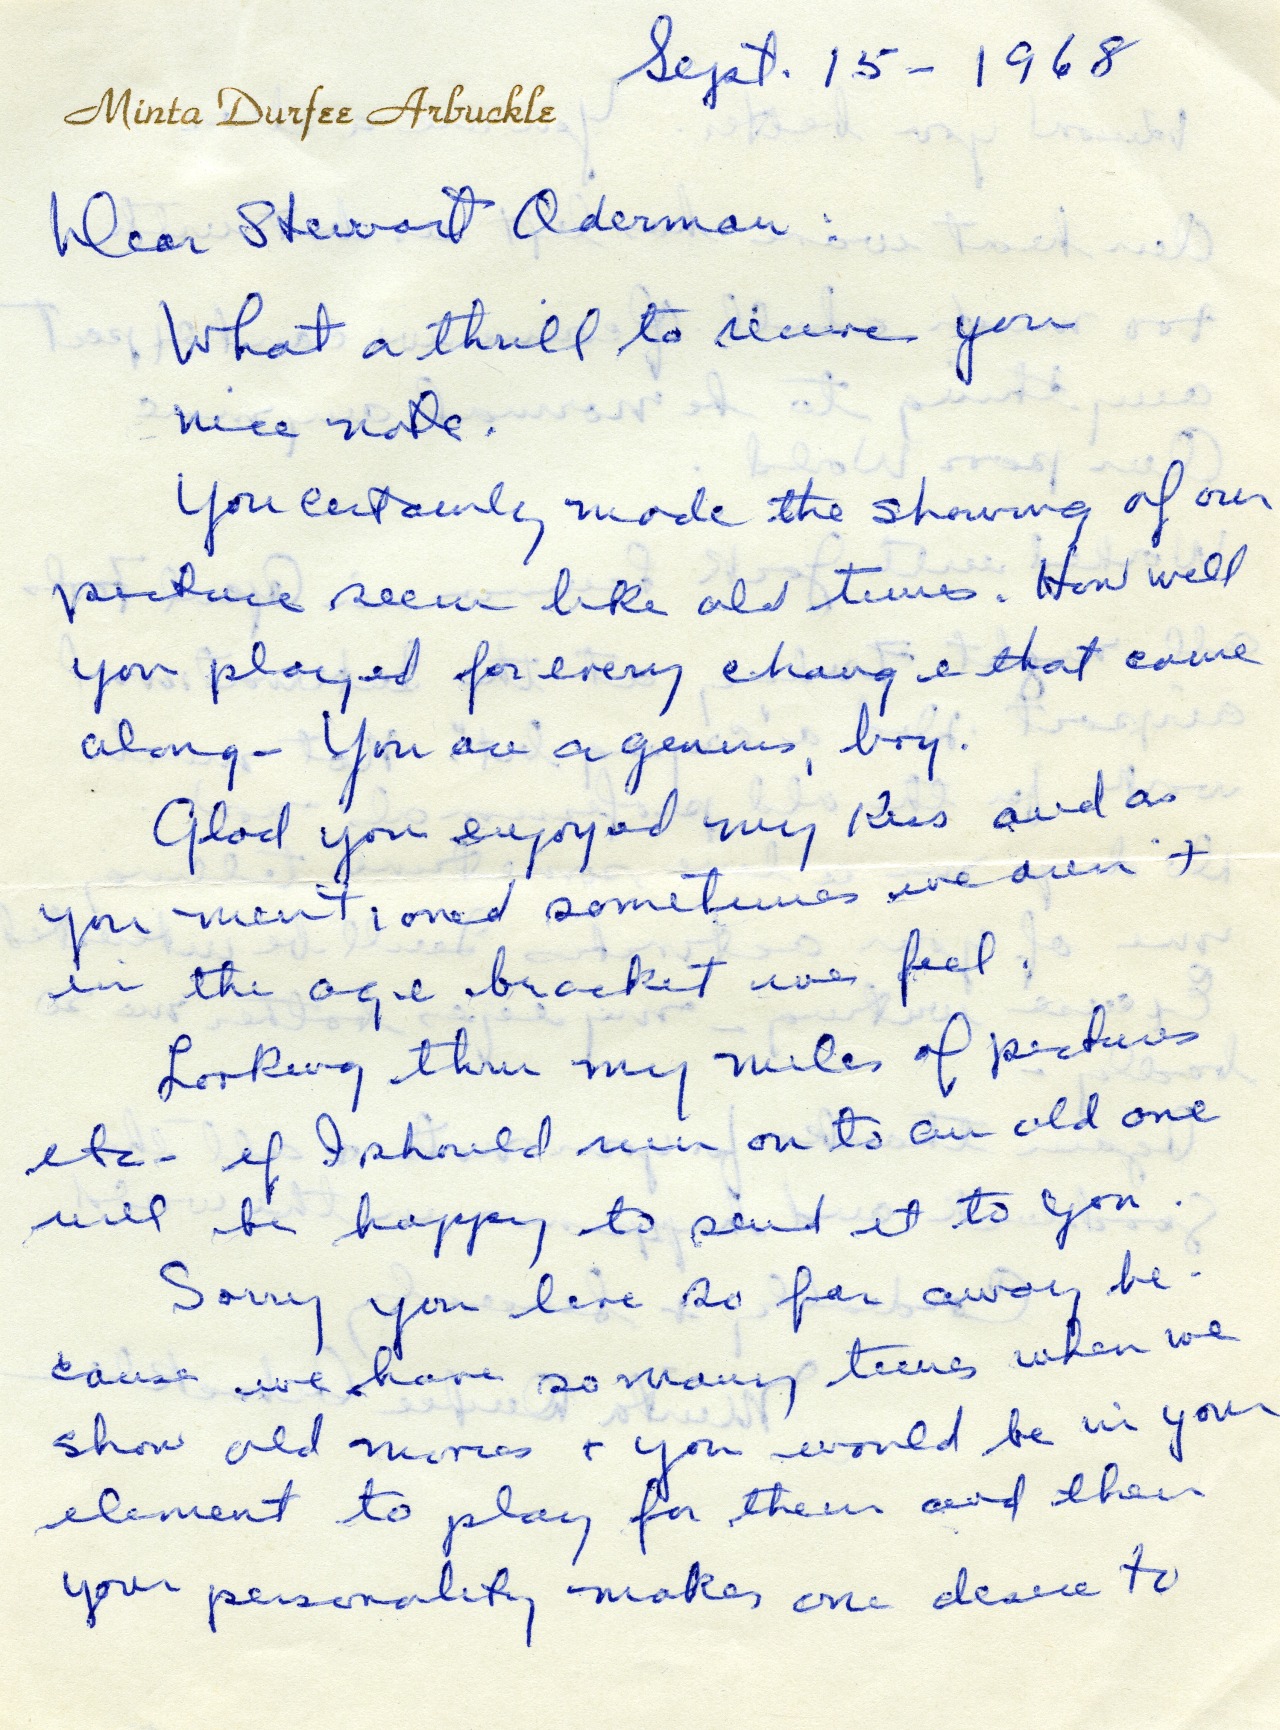 Sept. 15 - 1968
Minta Durfee Arbuckle
Dear Stewart Oderman:
What a thrill to receive you
nice note.
You certainly made the showing of our
picture seem like old times. How well
you played for every change that came
along - You are a genius, boy.
Glad you enjoyed my kiss and as
you mentioned sometimes we aren't
in the age bracket we feel.
Looking thru my miles of pictures
etc - if I should run on to an old one
will be happy to send it to you.
Sorry you live so far away be-
cause we have so many times when we
show old movies + you would be in your
element to play for them and then
your personality makes one desire to